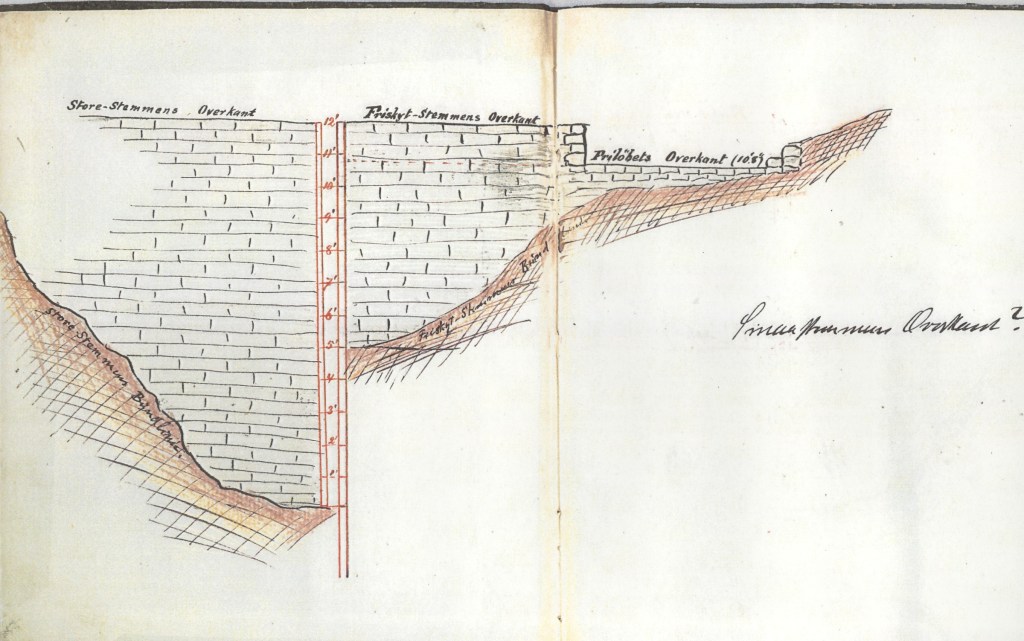 Store-Stemmens Overkant
Friskyt-Stemmens Overkant
Friløbets Overkant (10'8")
12'
11'
10'
9'
8'
7'
6'
5'
4'
3'
2'
1'
Store-Stemmens Bundlinie.
Friskyt-Stemmens Bund
Overkant?